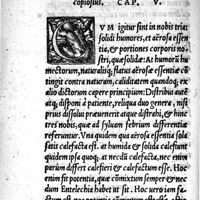 copiosius. CAP. V.
CVM igitur sint in nobis tria:
solidi humores, et aërosa essen
tia, & portiones corporis no
stri, quæ solidæ: At humorū hu
mectorum, naturalisq; flatus aërosæ essentiæ cō
tingit continue dari calamitatem quandoq; ex
alio dictorum capere principium: Distribui autē
atq; disponi à patiente, reliqua duo genera, nisi
prius dissolui præuenerit atque distrahi, & hunc
tres nobis, quæ ad sylum februm differentiæ
referuntur. Vna quidem quæ aërosa essentia sola
satis calefacta est. at humida & solida calefiunt
quidem ipsa quoq;. at necdū calefacta, nec enim
parum differt calefieri & calefactum esse. Hoc
enim sit potentia, quæ comixtum semper & nec
dum Entelechia habet ut sit. Hoc uero iam fa
ctum est